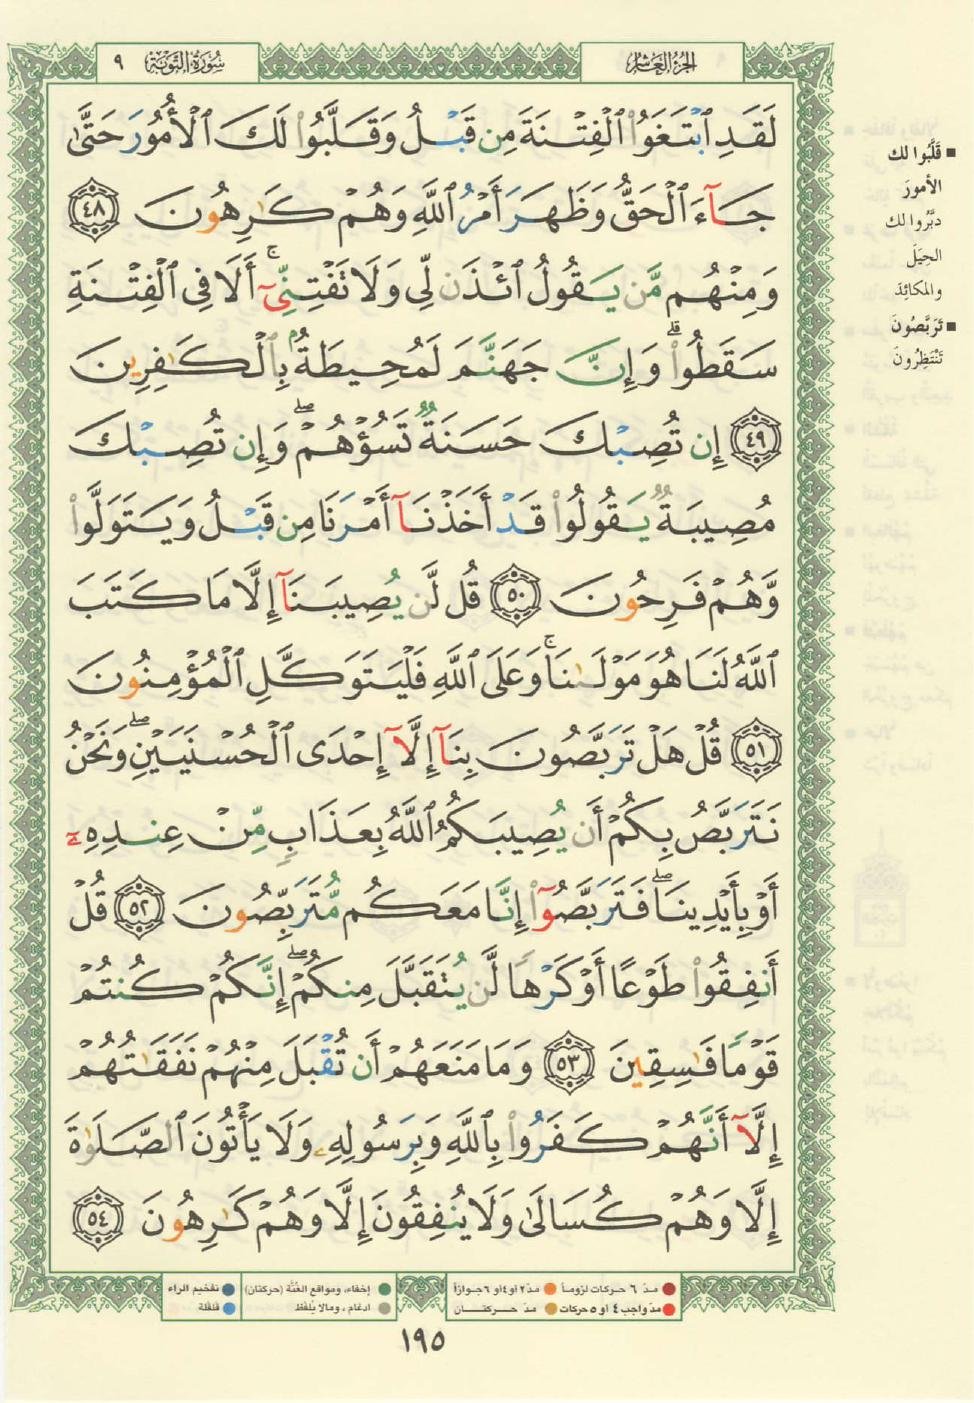 الجزء العاشر
سورة التوبة ٩
لَقَدِ ٱبْتَغَوُا۟ ٱلْفِتْنَةَ مِن قَبْلُ وَقَلَّبُوا۟ لَكَ ٱلْأُمُورَ حَتَّىٰ
جَآءَ ٱلْحَقُّ وَظَهَرَ أَمْرُ ٱللَّهِ وَهُمْ كَٰرِهُونَ ٤٨
وَمِنْهُم مَّن يَقُولُ ٱئْذَن لِّى وَلَا تَفْتِنِّىٓ ۚ أَلَا فِى ٱلْفِتْنَةِ
سَقَطُوا۟ ۗ وَإِنَّ جَهَنَّمَ لَمُحِيطَةٌۢ بِٱلْكَٰفِرِينَ
٤٩ إِن تُصِبْكَ حَسَنَةٌ تَسُؤْهُمْ ۖ وَإِن تُصِبْكَ
مُصِيبَةٌ يَقُولُوا۟ قَدْ أَخَذْنَآ أَمْرَنَا مِن قَبْلُ وَيَتَوَلَّوا۟
وَّهُمْ فَرِحُونَ ٥٠ قُل لَّن يُصِيبَنَآ إِلَّا مَا كَتَبَ
ٱللَّهُ لَنَا هُوَ مَوْلَىٰنَا ۚ وَعَلَى ٱللَّهِ فَلْيَتَوَكَّلِ ٱلْمُؤْمِنُونَ
٥١ قُلْ هَلْ تَرَبَّصُونَ بِنَآ إِلَّآ إِحْدَى ٱلْحُسْنَيَيْنِ ۖ وَنَحْنُ
نَتَرَبَّصُ بِكُمْ أَن يُصِيبَكُمُ ٱللَّهُ بِعَذَابٍ مِّنْ عِندِهِۦٓ
أَوْ بِأَيْدِينَا ۖ فَتَرَبَّصُوٓا۟ إِنَّا مَعَكُم مُّتَرَبِّصُونَ ٥٢ قُلْ
أَنفِقُوا۟ طَوْعًا أَوْ كَرْهًا لَّن يُتَقَبَّلَ مِنكُمْ ۖ إِنَّكُمْ كُنتُمْ
قَوْمًا فَٰسِقِينَ ٥٣ وَمَا مَنَعَهُمْ أَن تُقْبَلَ مِنْهُمْ نَفَقَٰتُهُمْ
إِلَّآ أَنَّهُمْ كَفَرُوا۟ بِٱللَّهِ وَبِرَسُولِهِۦ وَلَا يَأْتُونَ ٱلصَّلَوٰةَ
إِلَّا وَهُمْ كُسَالَىٰ وَلَا يُنفِقُونَ إِلَّا وَهُمْ كَٰرِهُونَ ٥٤
■ قَلَّبُوا لك
الأمورَ
دبَّرُوا لك
الحِيَلَ
والمكائِدَ
■ تَرَبَّصُونَ
تَنْتَظِرُونَ
مدّ ٦ حركات لزوماً
مدّ ٢ أو ٤ أو ٦ جوازاً
إخفاء، ومواقع الغُنَّة (حركتان)
تفخيم الراء
مدّ واجب ٤ أو ٥ حركات
مدّ حركتان
ادغام، ومالا يُلفَظ
قلقلة
١٩٥